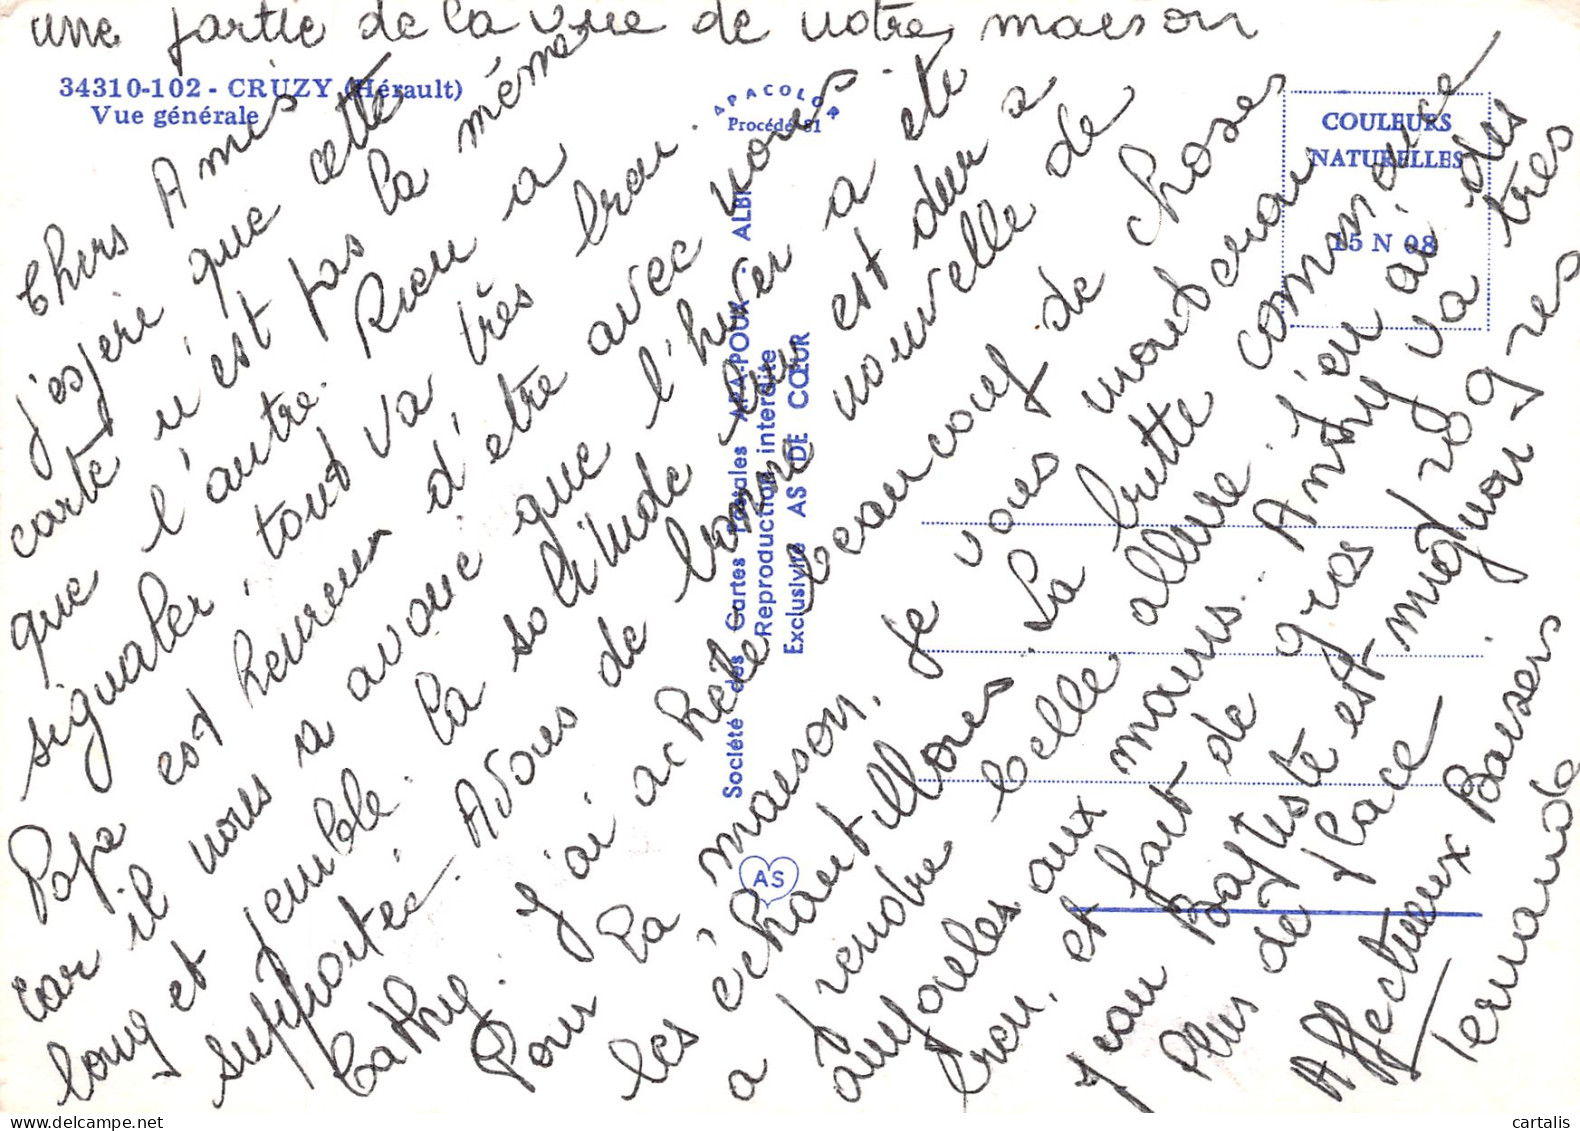 une partie de la vue de notre maison
34310-102 - CRUZY (Hérault)
Vue générale
APACOLOR
Procédé 81
COULEURS
NATURELLES
15 N 08
Société des Cartes Postales APA-POUX - ALBI
Reproduction interdite
Exclusivité AS DE CŒUR
AS
Chers Amis
j'espère que cette
carte n'est pas la même
que l'autre. Rien a
signaler, tout va très bien.
Papa est heureux d'etre avec vous
car il nous a avoué que l'hiver a été
long et penible. la solitude est dur a
supporter. Avons de bonne nouvelle de
Cathy. J'ai acheté beaucoup de choses
Pour la maison. Je vous montrerai
les échantillons. La butte commence
a prendre belle allure. J'en ai des
ampoules aux mains. Anthy va très
bien, et fait de gros progres
Jean Baptiste est mignon
Plus de place
Affectueux Baisers
Fernande